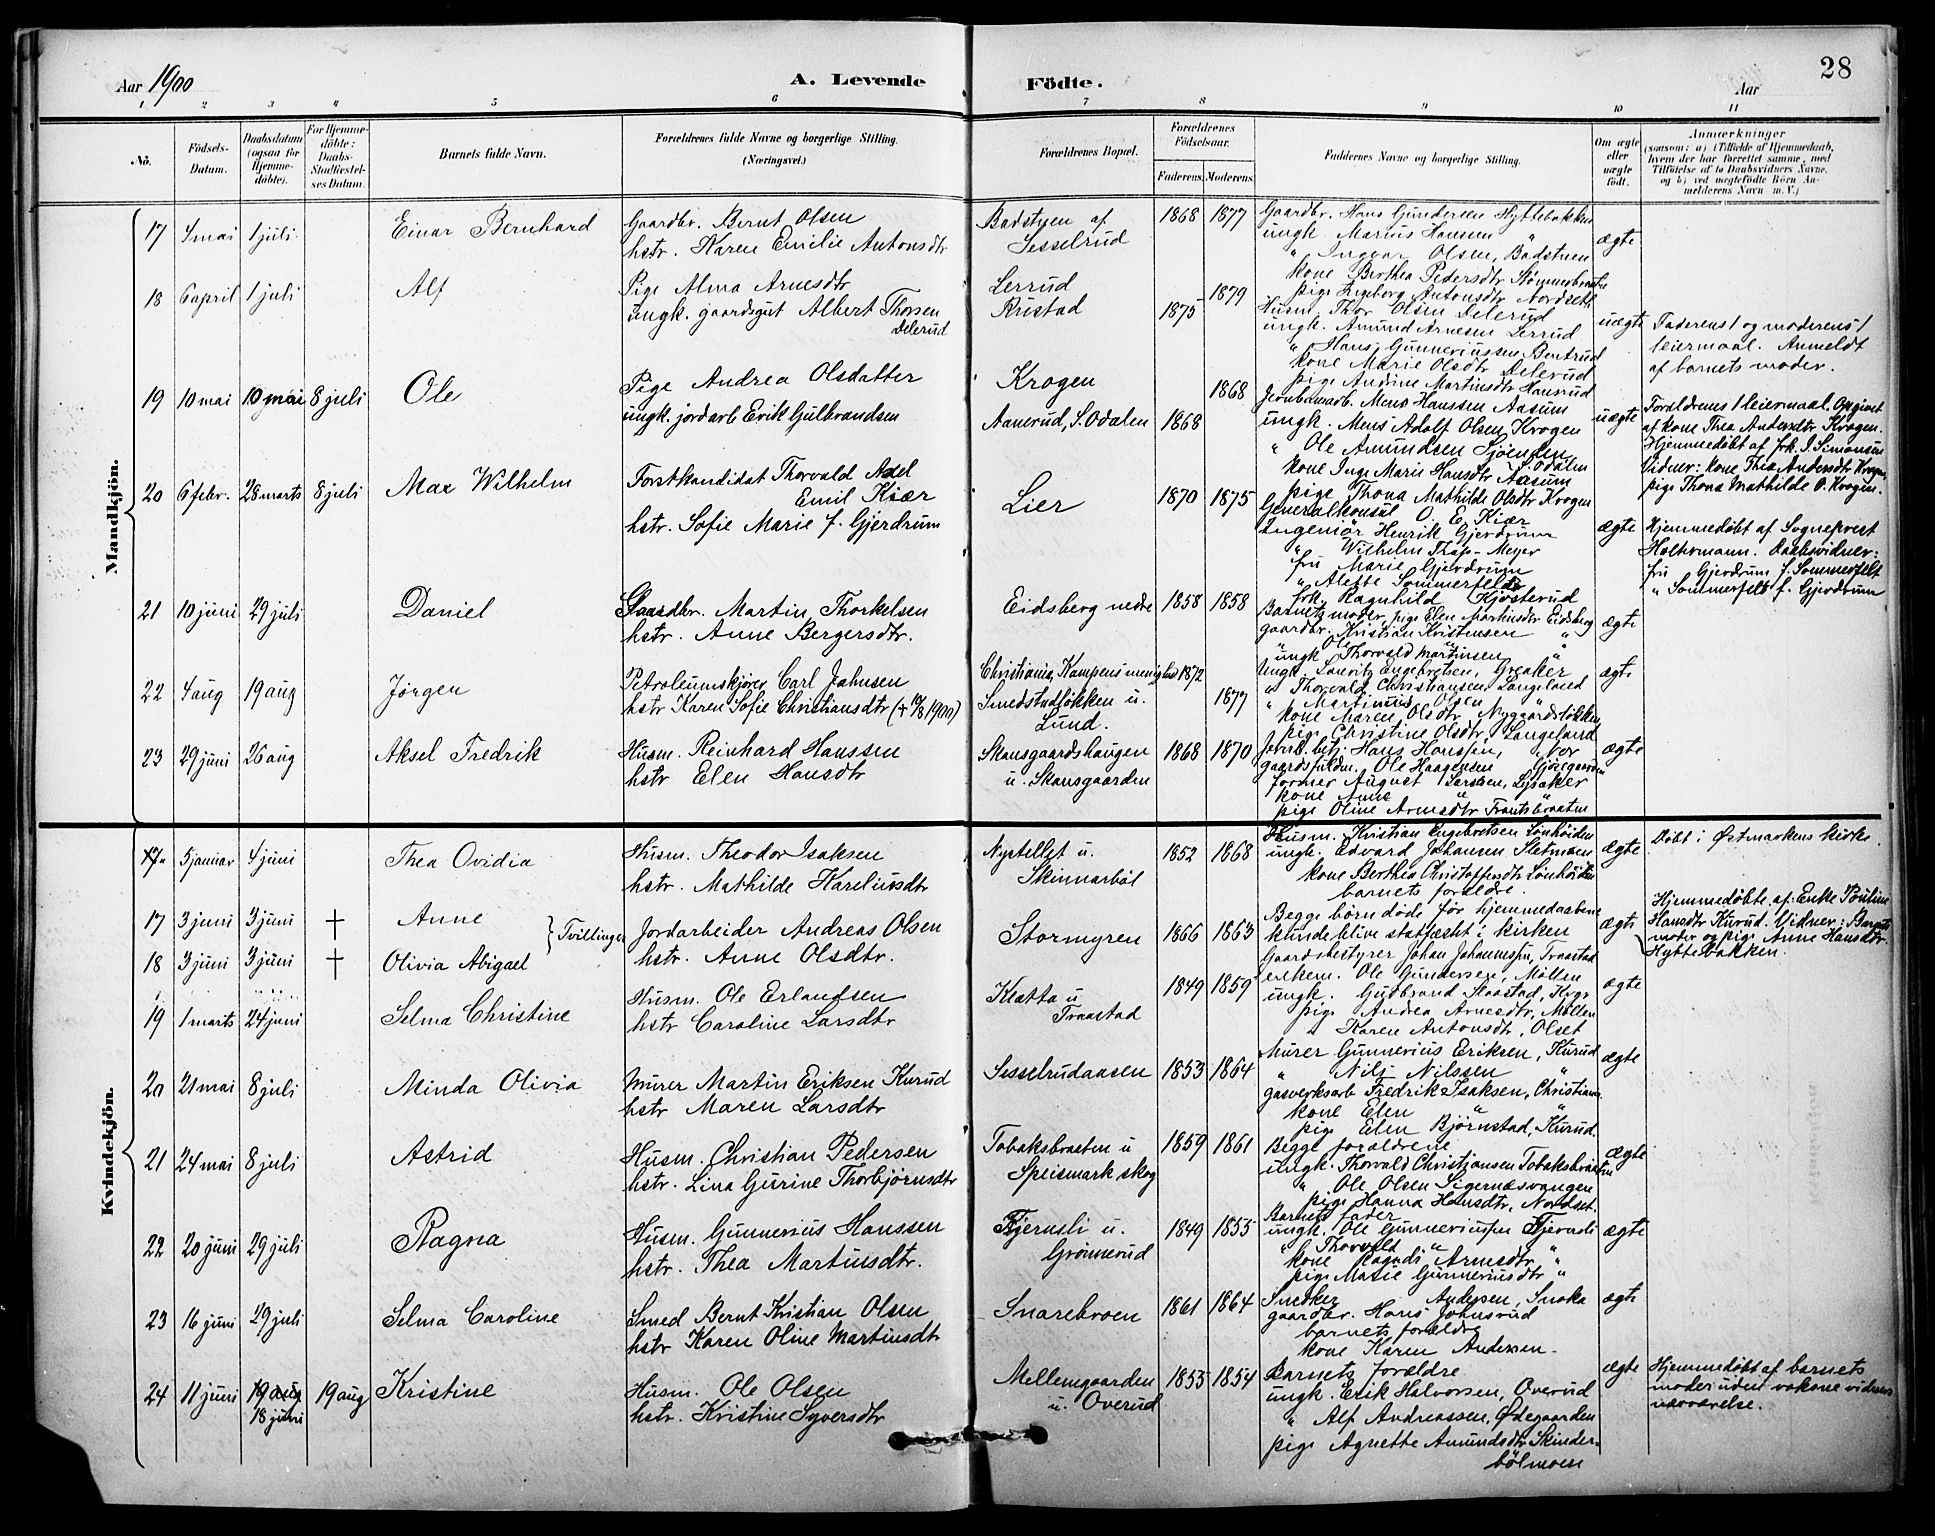 28
Aar 1900 A. Levende Födte. Aar
1 2 3 4 5 6 7 8 9 10 11
No.
Födsels-Datum.
Daabsdatum (ogsaa for Hjemme-döbte).
For Hjemme-döbte: Daabs-Stadfæstel-ses Datum.
Barnets fulde Navn.
Forældrenes fulde Navne og borgerlige Stilling.
(Næringsvei.)
Forældrenes Bopæl.
Forældrenes Födselsaar.
Faderens. Moderens.
Faddernes Navne og borgerlige Stilling.
Om ægte eller uægte født.
Anmærkninger
(saasom: a) i Tilfælde af Hjemmedaab, hvem der har forrettet samme, med Tilföielse af to Daabsvidners Navne, og b) ved uægtefödte Börn Anmelderens Navn m. V.)
Mandkjön.
17 4 mai 1 juli Einar Bernhard
Gaardbr. Bernt Olsen
hstr. Karen Emilie Antonsdtr
Badstuen af
Sesselrud
1868 1877
Gaardbr. Hans Gundersen Hyttebakken
ungk. Marius Hansen "
" Ingvar Olsen, Badstuen
kone Berthea Pedersdtr Strømmerbraaten
pige Ingeborg Antonsdtr Nordsetl
ægte
18 6 april 1 juli Alf
Pige Alma Arnesdtr
ungk. gaardsgut Albert Thorsen
Delerud
Lerrud
Rustad
1875 1879
Husm. Thor Olsen Delerud
ungk. Amund Arnesen Lerrud
" Hans Gunneriussen Bentrud
kone Marie Olsdtr Delerud
pige Andrine Martinsdtr Hansrud
uægte
Faderens 1 og moderens 1
leiermaal. Anmeldt
af barnets moder.
19 10 mai 10 mai 8 juli Ole
Pige Andrea Olsdatter
ungk. jordarb Erik Gulbrandsen
Krogen
Aamrud, S. Odalen
1868 1868
Jernbanearb. Mens Hanssen Aasum
ungk. Mens Adolf Olsen, Krogen
" Ole Amundsen Sjøenden
S. Odalen
kone Inge Marie Hansdtr Aasum
pige Thona Mathilde Olsdtr Krogen
uægte
Forældrenes 1 leiermaal. Opgivet
af kone Thea Andersdtr Krogen.
Hjemmedøbt af frk. J. Simonsen
Vidner: kone Thea Andersdtr Krogen
pige Thona Mathilde O. Krogen.
20 6 febr. 28 marts 8 juli Max Wilhelm
Forstkandidat Thorvald Axel
Emil Kiær
hstr. Sofie Marie f. Gjerdrum
Lier
1870 1875
Generalkonsul O. E. Kiær
Ingeniør Henrik Gjerdrum
" Wilhelm Thás-Meyer
fru Marie Gjerdrum
" Alette Sommerfeldt
frk. Ragnhild Kjøsterud
ægte
Hjemmedøbt af Sogneprest
Holtermann. Daabsvidner:
fru Gjerdrum f. Sommerfelt
" Sommerfelt f. Gjerdrum
21 10 juni 29 juli Daniel
Gaardbr. Martin Thorkelsen
hstr. Anne Bergersdtr.
Eidsberg nedre
1858 1858
Barnets moder, pige Elen Martinsdtr Eidsberg
gaardbr. Kristian Kristensen "
ungk Ole "
Thorvald Martinsen "
ægte
22 4 aug 19 aug Jørgen
Petroleumskjører Carl Johnsen
hstr Karen Sofie Christiansdtr (+ 10/8 1900)
Christiania, Kampens menighed
Smedstadløkken u.
Lund.
1872 1877
Ungk. Lauritz Engebretsen, Greaker
" Thorvald Christiansen, Langeland
" Martinius Olsen "
kone Maren Olsdtr Nygaardsløkken
pige Christine Olsdtr, Langeland
ægte
23 29 juni 26 aug Aksel Fredrik
Husm. Reinhard Hanssen
hstr Elen Hansdtr
Skansgaardshaugen
u. Skansgaarden
1868 1870
Hans Hanssen, Vor
gaardsfuldm. Ole Haagensen
former August Larssen, Lysaker
kone Anne "
pige Oline Arnesdtr Frantsbraaten
ægte
Kvindekjön.
5 januar 4 juni Thea Ovidia
Husm. Theodor Isaksen
hstr. Mathilde Kareliusdtr
Nystellet u.
Skinnarböl
1852 1868
Husm. Kristian Engebretsen Lønhøiden
ungk. Edvard Johansen Sletmoen
kone Berthea Christoffersdtr Lønhøiden
barnets forældre.
ægte
Døbt i Østmarkens kirke.
17 3 juni 3 juni + Anne
18 3 juni 3 juni + Olivia Abigael
Tvillinger
Jordarbeider Andreas Olsen
hstr. Anne Olsdtr.
Stormyren
1866 1863
Begge børn døde før hjemmedaabene
kunde blive stadfæstet i kirken
ægte
Hjemmedøbte af: Enke Pauline
Hansdtr Kurud. Vidner: Barnets
moder og pige Anne Hansdtr
Hyttebakken.
19 1 marts 24 juni Selma Christine
Husm. Ole Erlandsen
hstr Caroline Larsdtr
Klætta u
Traastad
1849 1859
Gaardsbestyrer Johan Johannessen, Traastad
enkem. Ole Gundersen, Møllen
ungk. Gudbrand Skaastad, Kvgs
pige Andrea Arnesdtr, Møllen
" Karen Antonsdtr, Olset
ægte
20 21 mai 8 juli Minda Olivia
Murer Martin Eriksen Kurud
hstr Maren Larsdtr
Sesselrudaasen
1853 1864
Murer Gunnerius Eriksen, Kurud
" Nils Nilssen "
gasverksarb Fredrik Isaksen, Christiania
kone Elen " "
pige Elen Bjørnstad, Kurud.
ægte
21 24 mai 8 juli Astrid
Husm. Christian Pedersen
hstr. Lina Gurine Thorbjørnsdtr
Tobaksbraaten u
Speismark skog
1859 1861
Begge forældrene
ungk. Thorvald Christiansen Tobaksbraaten
" Ole Olsen Sigernæsvangen
pige Hanna Hansdtr, Nordset.
ægte
22 20 juni 29 juli Ragna
Husm. Gunnerius Hanssen
hstr. Thea Martinsdtr.
Fjernsli u.
Grønnerud
1849 1855
Barnets fader
ungk. Ole Gunneriussen Fjernsli
" Thorvald " "
kone Ragndi Arnesdtr "
pige Marie Gunneriusdtr "
ægte
23 16 juni 29 juli Selma Caroline
Smed Bernt Kristian Olsen
hstr Karen Oline Martinsdtr
Snarebroen
1861 1864
Snedker Andersen, Snoka
gaardbr. Hans Johnsrud
barnets forældre
kone Karen Andersen
ægte
24 11 juni 19 aug 18 juni 19 aug Kristine
Husm. Ole Olsen
hstr. Kristine Syversdtr
Mellemgaarden
u. Overud
1855 1854
Barnets forældre
ungk. Erik Halvorsen, Overud
" Alf Andreassen, Ødegaarden
pige Agnette Amundsdtr Skinder-
bölmoen
ægte
Hjemmedøbt af barnets
moder uden voksne vidners
nærværelse.